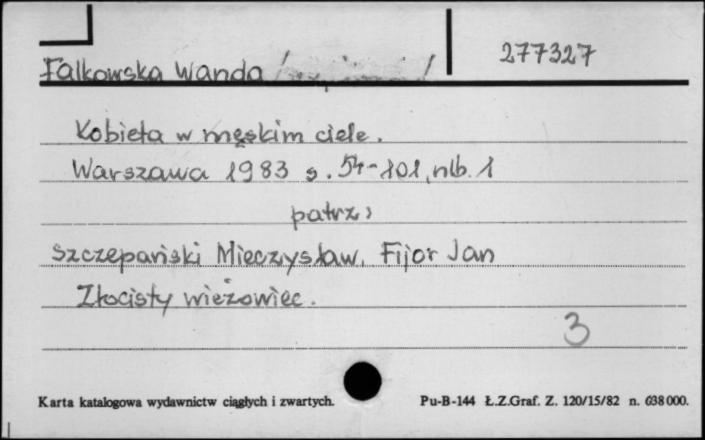 277327
Falkowska Wanda / /
Kobieta w męskim ciele.
Warszawa 1983 s. 54-101, nlb. 1
patrz:
Szczepański Mieczysław, Fijor Jan
Złocisty wieżowiec.
3
Karta katalogowa wydawnictw ciągłych i zwartych. Pu-B-144 Ł.Z.Graf. Z. 120/15/82 n. 638000.